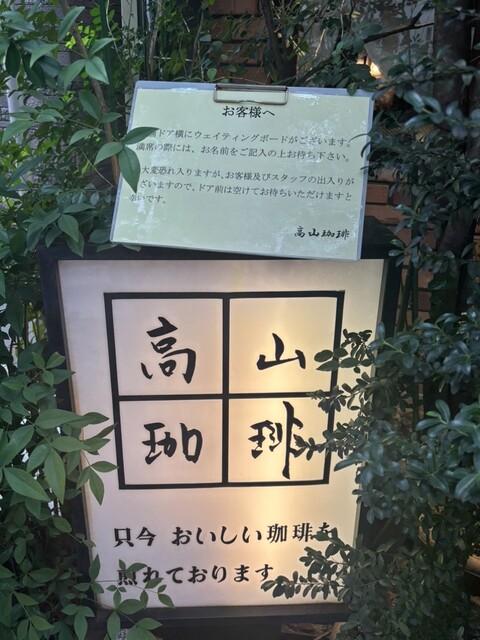 お客様へ
ドア横にウェイティングボードがございます。
満席の際には、お名前をご記入の上お待ち下さい。
大変恐れ入りますが、お客様及びスタッフの出入りが
ざいますので、ドア前は空けてお待ちいただけますと
幸いです。
高山珈琲
高山
珈琲
只今 おいしい珈琲を
煎れております